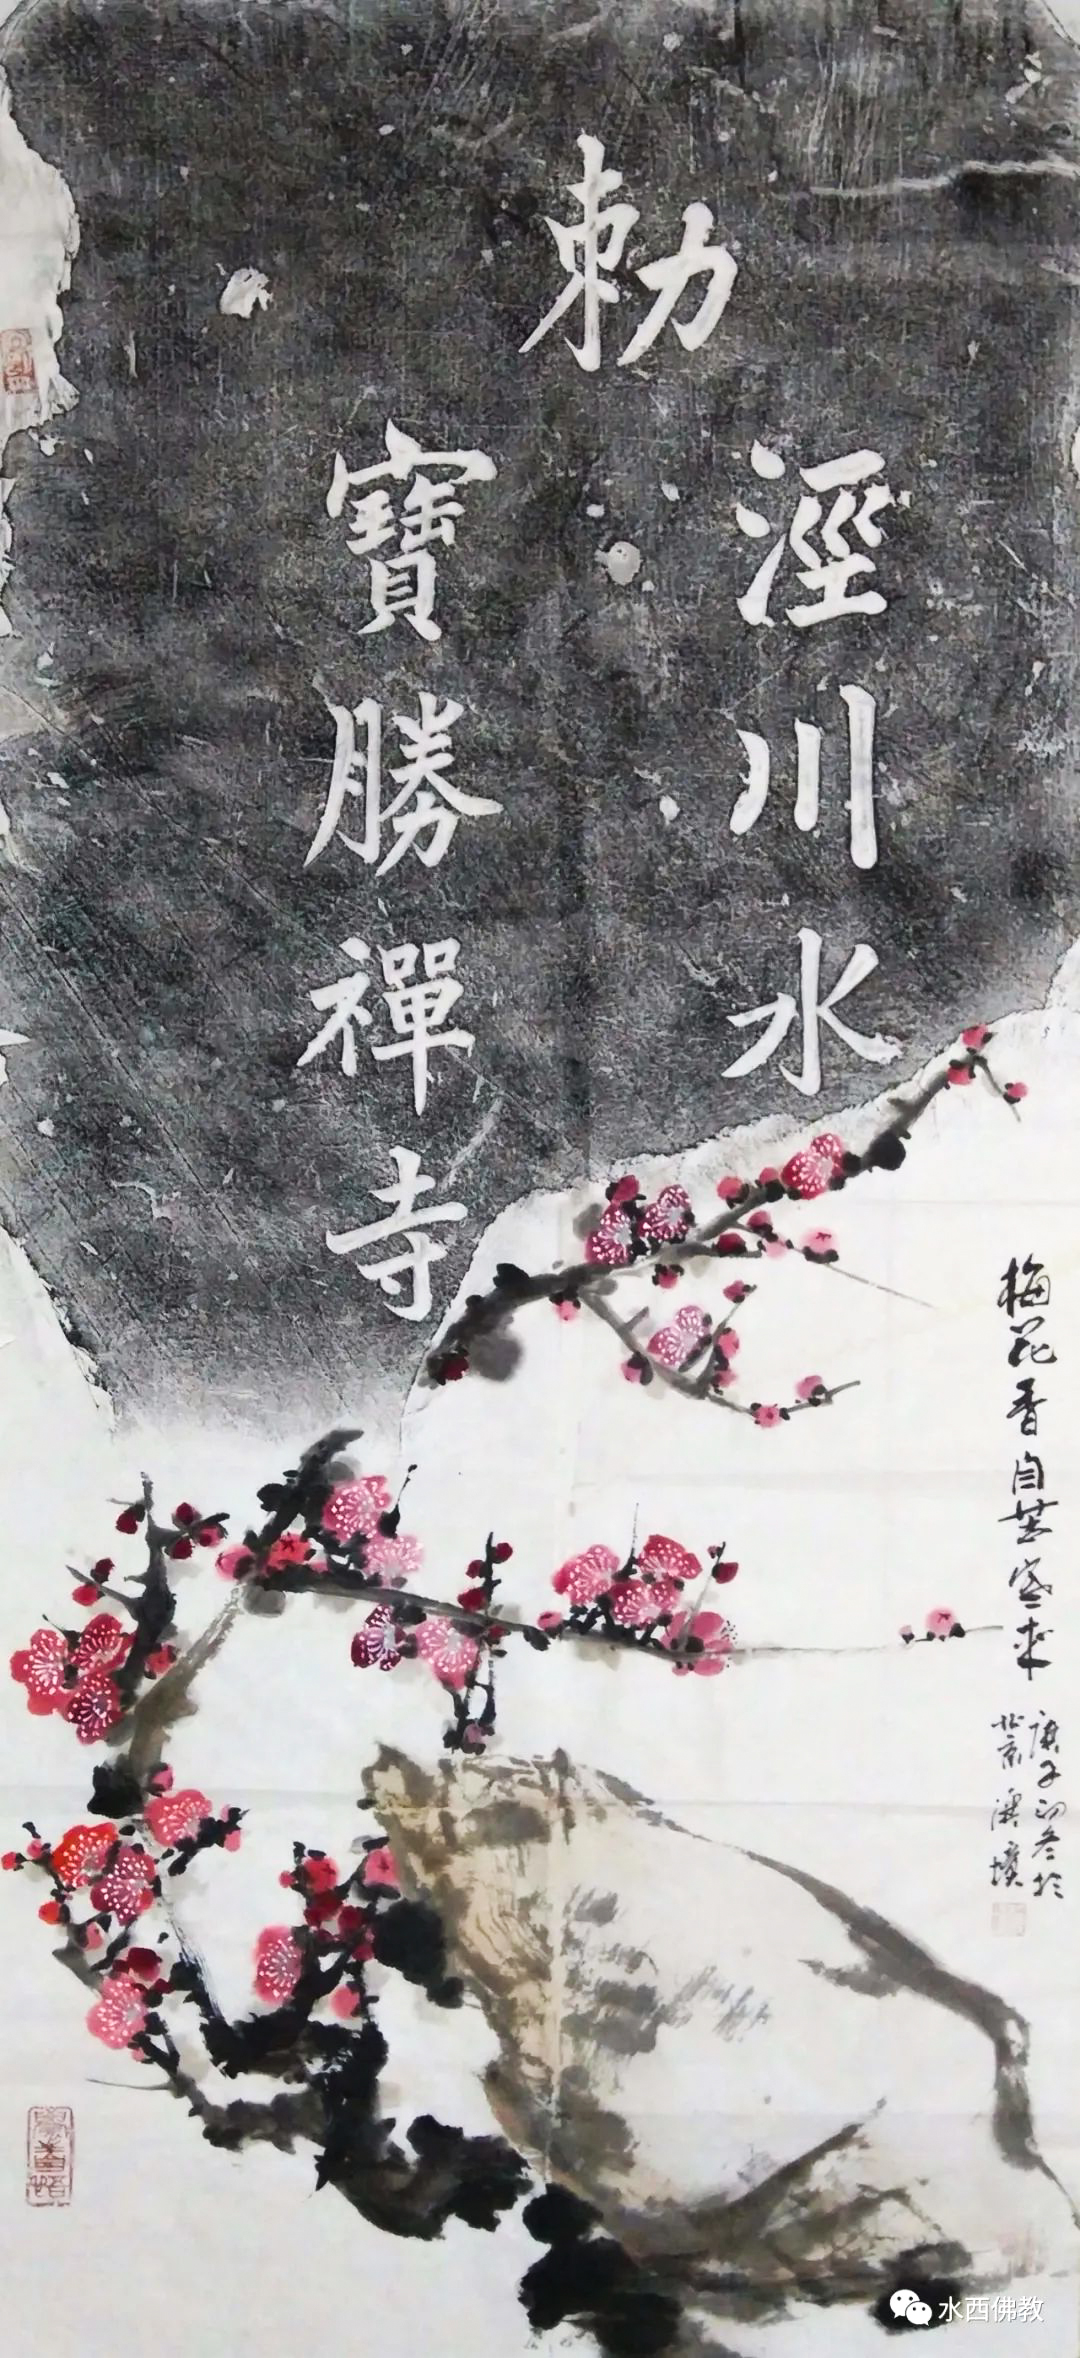 勅
涇川水
寶勝禪寺
梅花香自苦寒来
庚子初冬於
北京
水西佛教